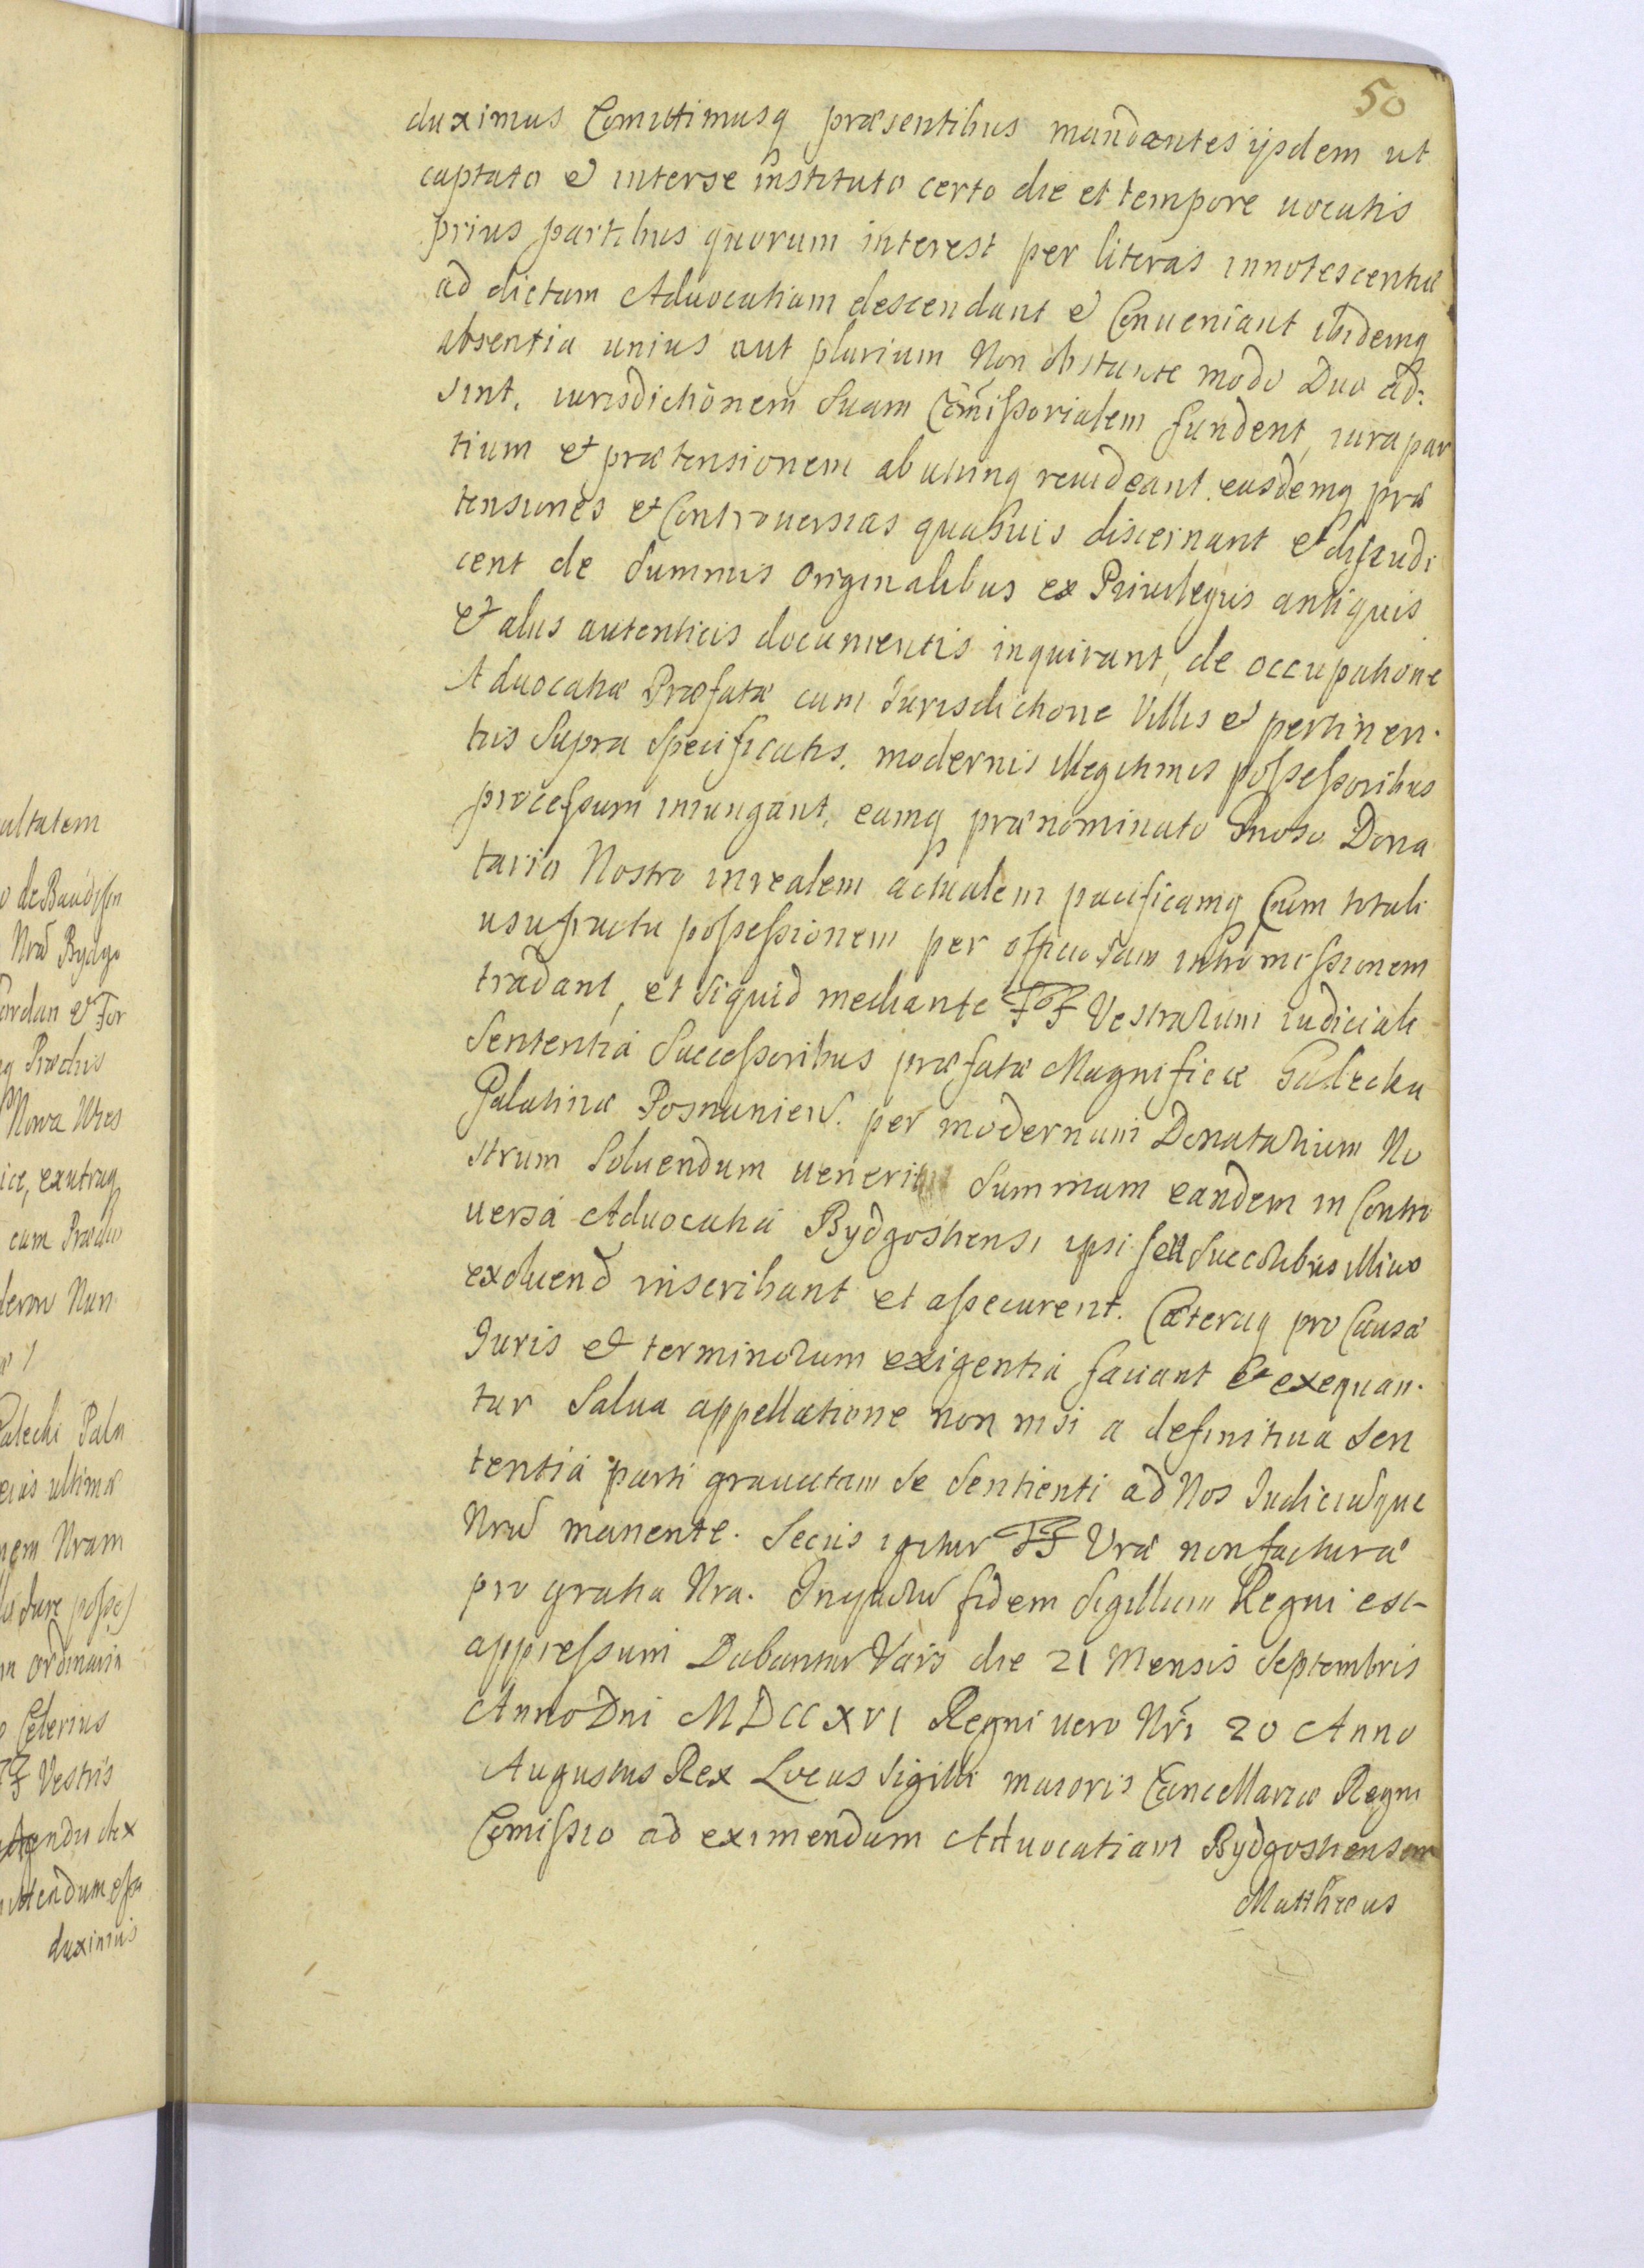 50
duximus Comittimusq præsentibus mandantes ijsdem ut
captato et interse instituto certo die et tempore uocatis
prius partibus quorum interest per literas innotescentiæ
ad dictam Aduocatiam descendant et Conueniant ibidemq
absentia unius aut plurium Non obstante modo Duo ad:
sint, iurisdictionem Suam Comissorialem fundent, iura par
tium et prætensionem ab utinq reuideant easdemq præ
tensiones et Controuersias quasuis discernant et diiudi
cent de Summis Originalibus ex Priuilegijs antiquis
et alijs autenticis documentis inquirant, de occupatione
Aduocatiæ Præfatæ cum Jurisdictione Villis et pertinen.
tijs Supra Specificatis, modernis illegitimis possessoribus
processum iniungant, eamq prænominato Gnoso Dona
tario Nostro in realem actualem pacificamq Cum totali
usufructu possessionem per officiosam intromissionem
tradant, et Siquid mediante FF Vestrarum iudiciali
Sententiá Successoribus præfatæ Magnificæ Galecka
Palatinæ Posnanien. per modernum Donatarium No
strum Soluendum uenerit Summam eandem in Contro
uersá Aduocatiá Bydgostiensi ipsi seu Succoribus illius
exoluend inscribant et assecurent. Cæteraq pro Causæ
Juris et terminorum exigentiá faciant et exequan.
tur Salua appellatione non nisi a definitiua Sen
tentiá parti grauatam se Sentienti ad Nos Iudiciumque
Nrum manente. Secus igitur FF Vræ non facturæ
pro gratia Nra. In quorum fidem Sigillum Regni est
appressum Dabantur Vars die 21 Mensis Septembris
Anno Dni MDCCXVI Regni uero Nri 20 Anno
Augustus Rex Locus Sigilli maioris Cancellariæ Regni
Comissio ad eximendam Aduocatiam Bydgostiensem
Matthæus
ultatem
Nrum Bydgo
ordan et For
Nowa Wies
eam Prædio
Nun
Galecki Pala
eius ultimæ
nem Nram
Jure posse)
ordinaria
Celerius
FF Vestris
duximus